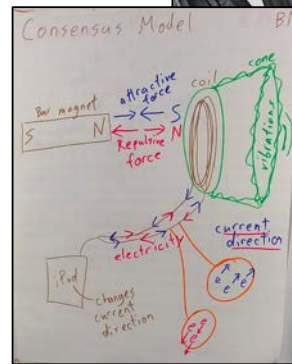 Consensus Model
cone
coil
Bar magnet
attractive
force
S N
S
N
Repulsive
force
vibrations
current
direction
electricity
iPod
changes
current
direction
e e e
e e e